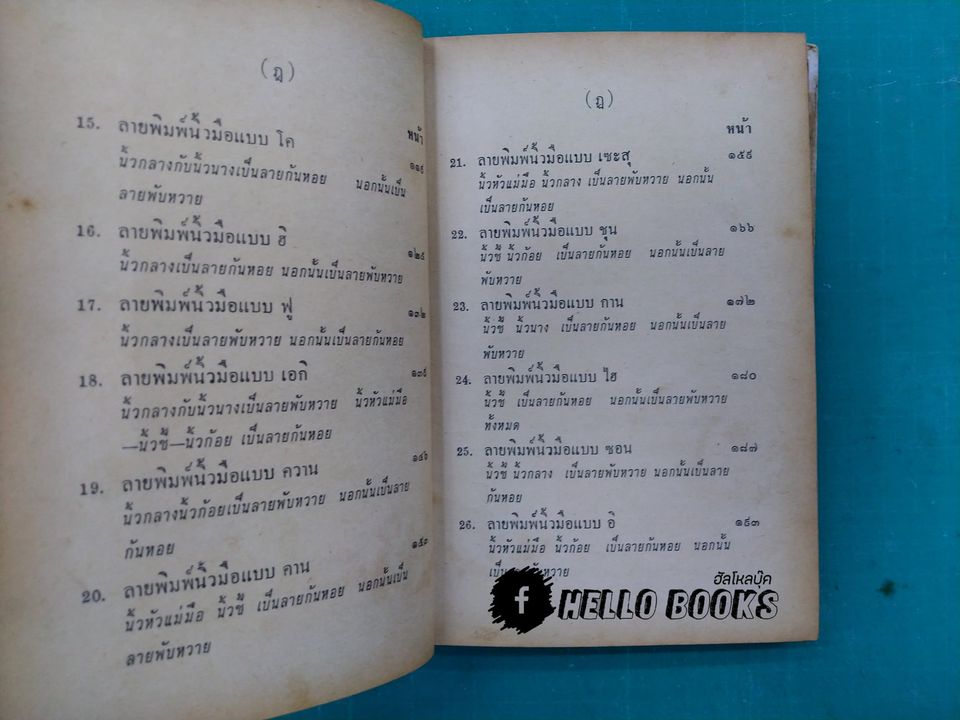 (ฎ)
หน้า
15. ลายพิมพ์นิ้วมือแบบ โค ๑๑๙
นิ้วกลางกับนิ้วนางเป็นลายก้นหอย นอกนั้นเป็น
ลายพับหวาย
16. ลายพิมพ์นิ้วมือแบบ ฮิ ๑๒๕
นิ้วกลางเป็นลายก้นหอย นอกนั้นเป็นลายพับหวาย
17. ลายพิมพ์นิ้วมือแบบ ฟู ๑๓๒
นิ้วกลางเป็นลายพับหวาย นอกนั้นเป็นลายก้นหอย
18. ลายพิมพ์นิ้วมือแบบ เอกิ ๑๓๙
นิ้วกลางกับนิ้วนางเป็นลายพับหวาย นิ้วหัวแม่มือ
—นิ้วชี้—นิ้วก้อย เป็นลายก้นหอย
19. ลายพิมพ์นิ้วมือแบบ ควาน ๑๔๖
นิ้วกลางนิ้วก้อยเป็นลายพับหวาย นอกนั้นเป็นลาย
ก้นหอย
20. ลายพิมพ์นิ้วมือแบบ คาน ๑๕๓
นิ้วหัวแม่มือ นิ้วชี้ เป็นลายก้นหอย นอกนั้นเป็น
ลายพับหวาย
(ฏ)
หน้า
21. ลายพิมพ์นิ้วมือแบบ เซะสุ ๑๕๙
นิ้วหัวแม่มือ นิ้วกลาง เป็นลายพับหวาย นอกนั้น
เป็นลายก้นหอย
22. ลายพิมพ์นิ้วมือแบบ ชุน ๑๖๖
นิ้วชี้ นิ้วก้อย เป็นลายก้นหอย นอกนั้นเป็นลาย
พับหวาย
23. ลายพิมพ์นิ้วมือแบบ กาน ๑๗๒
นิ้วชี้ นิ้วนาง เป็นลายก้นหอย นอกนั้นเป็นลาย
พับหวาย
24. ลายพิมพ์นิ้วมือแบบ ไฮ ๑๘๐
นิ้วชี้ เป็นลายก้นหอย นอกนั้นเป็นลายพับหวาย
ทั้งหมด
25. ลายพิมพ์นิ้วมือแบบ ซอน ๑๘๗
นิ้วชี้ นิ้วกลาง เป็นลายพับหวาย นอกนั้นเป็นลาย
ก้นหอย
26. ลายพิมพ์นิ้วมือแบบ อิ ๑๙๓
นิ้วหัวแม่มือ นิ้วก้อย เป็นลายก้นหอย นอกนั้น
ฮัลโหลบุ๊ค
f HELLO BOOKS